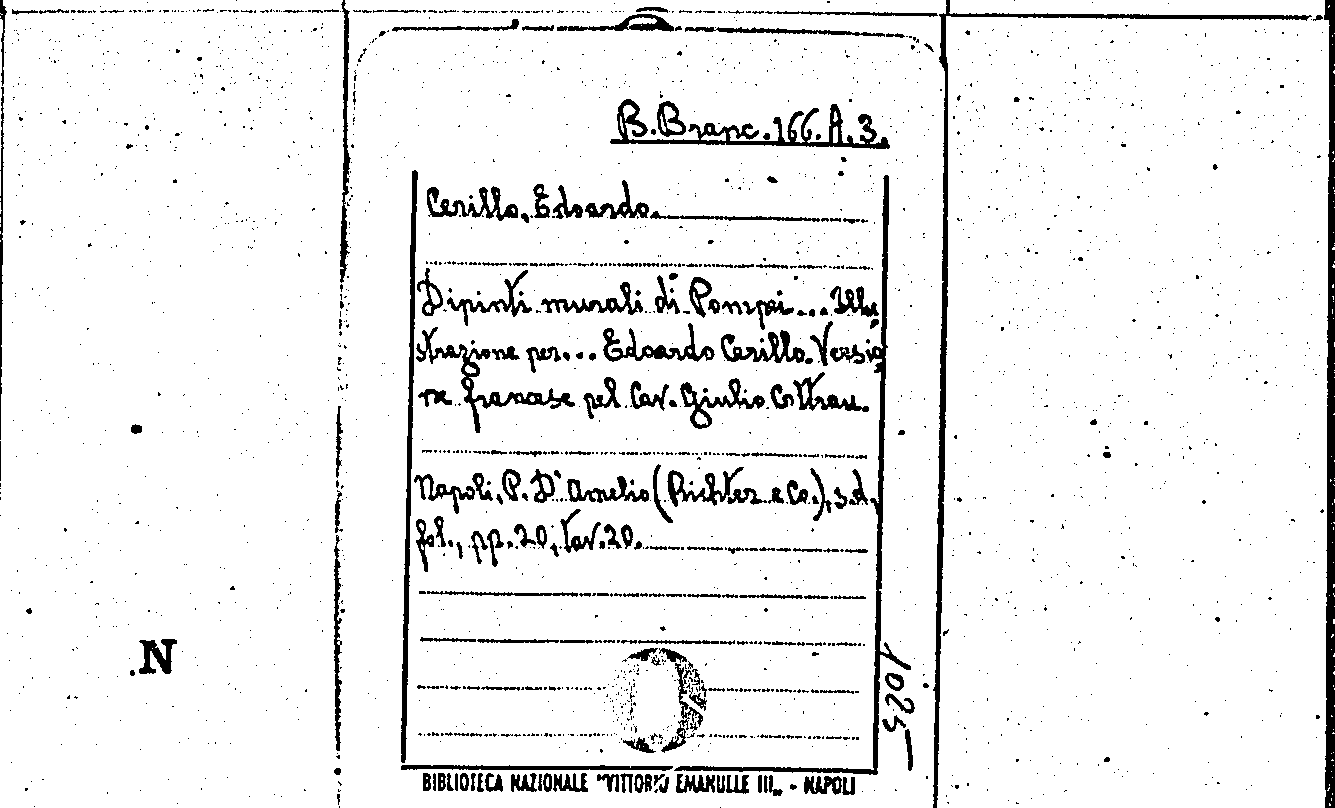 B.Branc.166.A.3.
Cerillo, Edoardo.
Dipinti murali di Pompei... Illu
strazione per... Edoardo Cerillo. Versio
ne francese pel Cav. Giulio Cottrau.
Napoli, P. D'Amelio (Richter e Co.), s.d.,
fol., pp. 20, tav. 20.
.N
1025
BIBLIOTECA NAZIONALE "VITTORIO EMANUELE III„ - NAPOLI